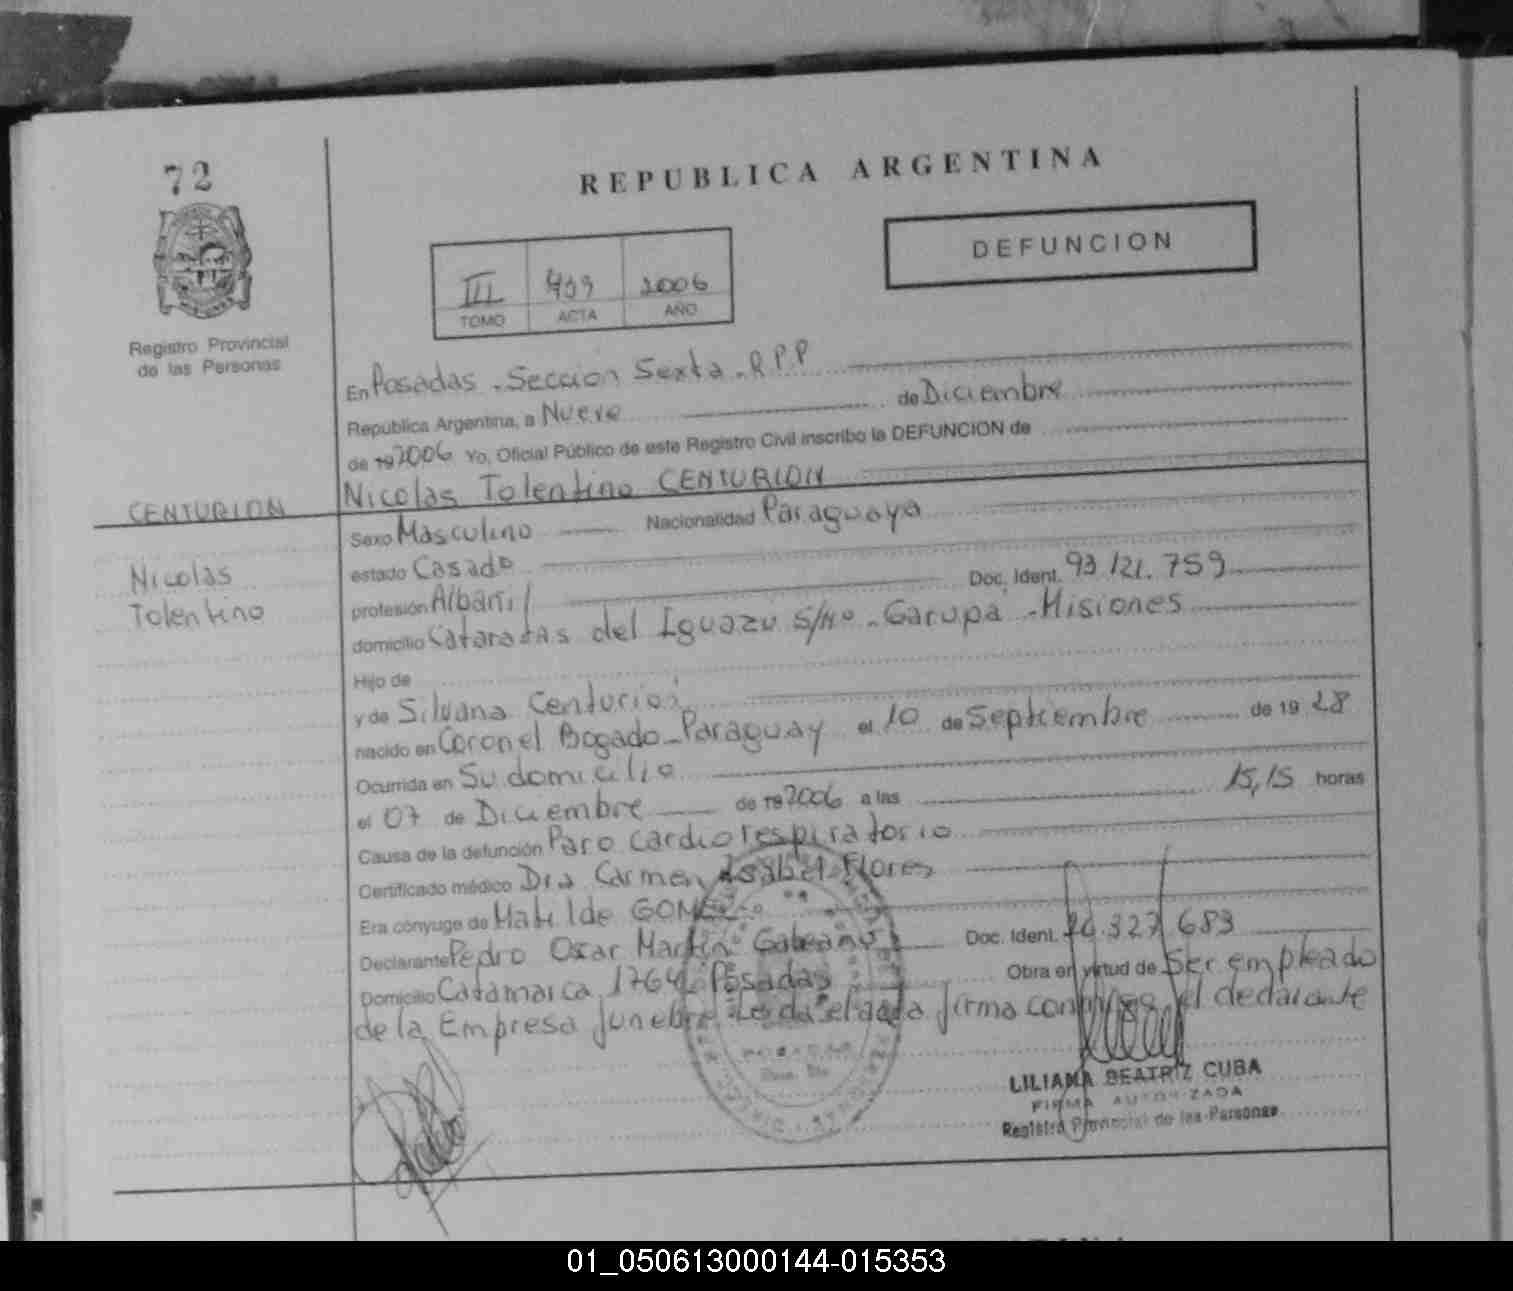 72
REPUBLICA ARGENTINA
DEFUNCION
III 2006
TOMO ACTA AÑO
Registro Provincial
de las Personas
En Posadas - Sección Sexta - R.P.P
República Argentina, a Nueve de Diciembre
de 19 2006 Yo, Oficial Público de este Registro Civil inscribo la DEFUNCION de
Nicolas Tolentino CENTURION
CENTURION
Nicolas
Tolentino
Sexo Masculino Nacionalidad Paraguaya
estado Casado
profesión Albañil Doc. Ident. 93.121.759
domicilio Cataratas del Iguazu S/Nº - Garupa - Misiones
Hijo de
y de Silvana Centurión
nacido en Coronel Bogado - Paraguay el 10 de Septiembre de 19 28
Ocurrida en Su domicilio
el 07 de Diciembre de 19 2006 a las 15,15 horas
Causa de la defunción Paro cardiorespiratorio
Certificado médico Dra Carmen Isabel Flores
Era cónyuge de Matilde GOMEZ
Declarante Pedro Oscar Martin Galeano Doc. Ident. 327.683
Domicilio Catamarca 1764 Posadas Obra en virtud de Ser empleado
de la Empresa funebre Leida el acta firma conmigo el declarante
LILIANA BEATRIZ CUBA
FIRMA AUTORIZADA
Registro Provincial de las Personas
01_050613000144-015353